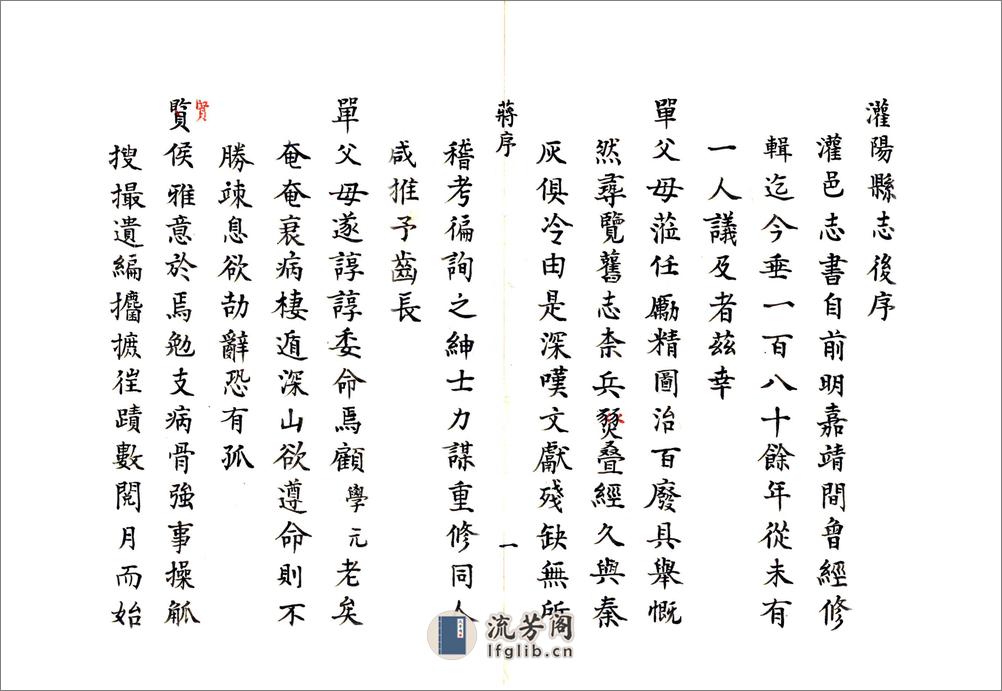 灌陽縣志後序
灌邑志書自前明嘉靖間曾經修
輯迄今垂一百八十餘年從未有
一人議及者茲幸
單父母蒞任勵精圖治百廢具舉慨
然尋覽舊志柰兵燹疊經久與秦
灰俱冷由是深嘆文獻殘缺無所
蔣序 一
稽考徧詢之紳士力謀重修同人
咸推予齒長
單父母遂諄諄委命焉顧學元老矣
奄奄衰病棲遁深山欲遵命則不
勝竦息欲劼辭恐有孤
賢
侯雅意於焉勉支病骨強事操觚
搜撮遺編攟摭徃蹟數閱月而始
流芳阁
lfglib.cn